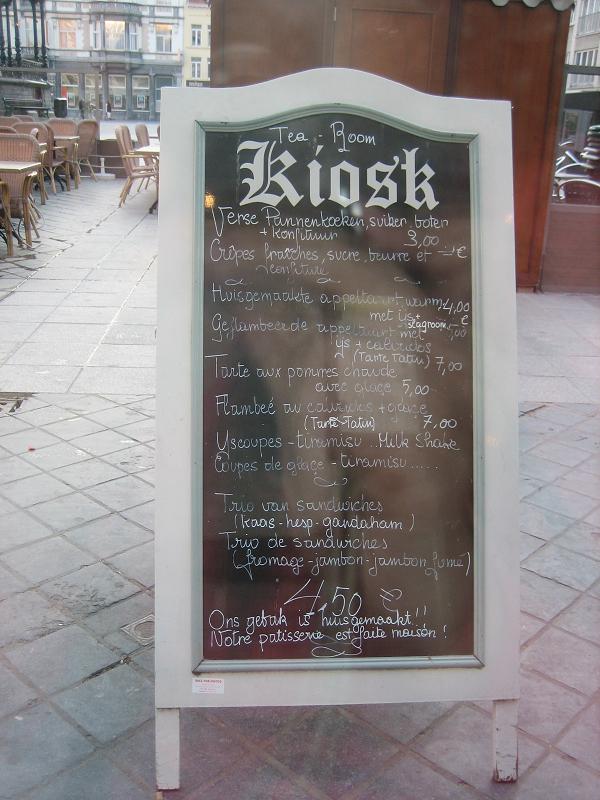 Tea-Room
Kiosk
Verse Pannenkoeken, suiker, boter
+ konfituur 3,00
Crêpes fraîches, sucre, beurre et €
confiture
Huisgemaakte appeltaart, warm 4,00
met ijs + slagroom €
Geflambeerde appeltaart met
ijs + calvados
(Tarte Tatin) 7,00
Tarte aux pommes chaude
avec glace 5,00
Flambeé au calvados + glace
(Tarte Tatin) 7,00
Yscoupes - tiramisu .. Milk Shake
Coupes de glace - tiramisu .....
Trio van sandwiches
(kaas - hesp - gandaham)
Trio de sandwiches
(fromage - jambon - jambon fumé)
4,50
Ons gebak is huisgemaakt!!
Notre patisserie est faite maison!